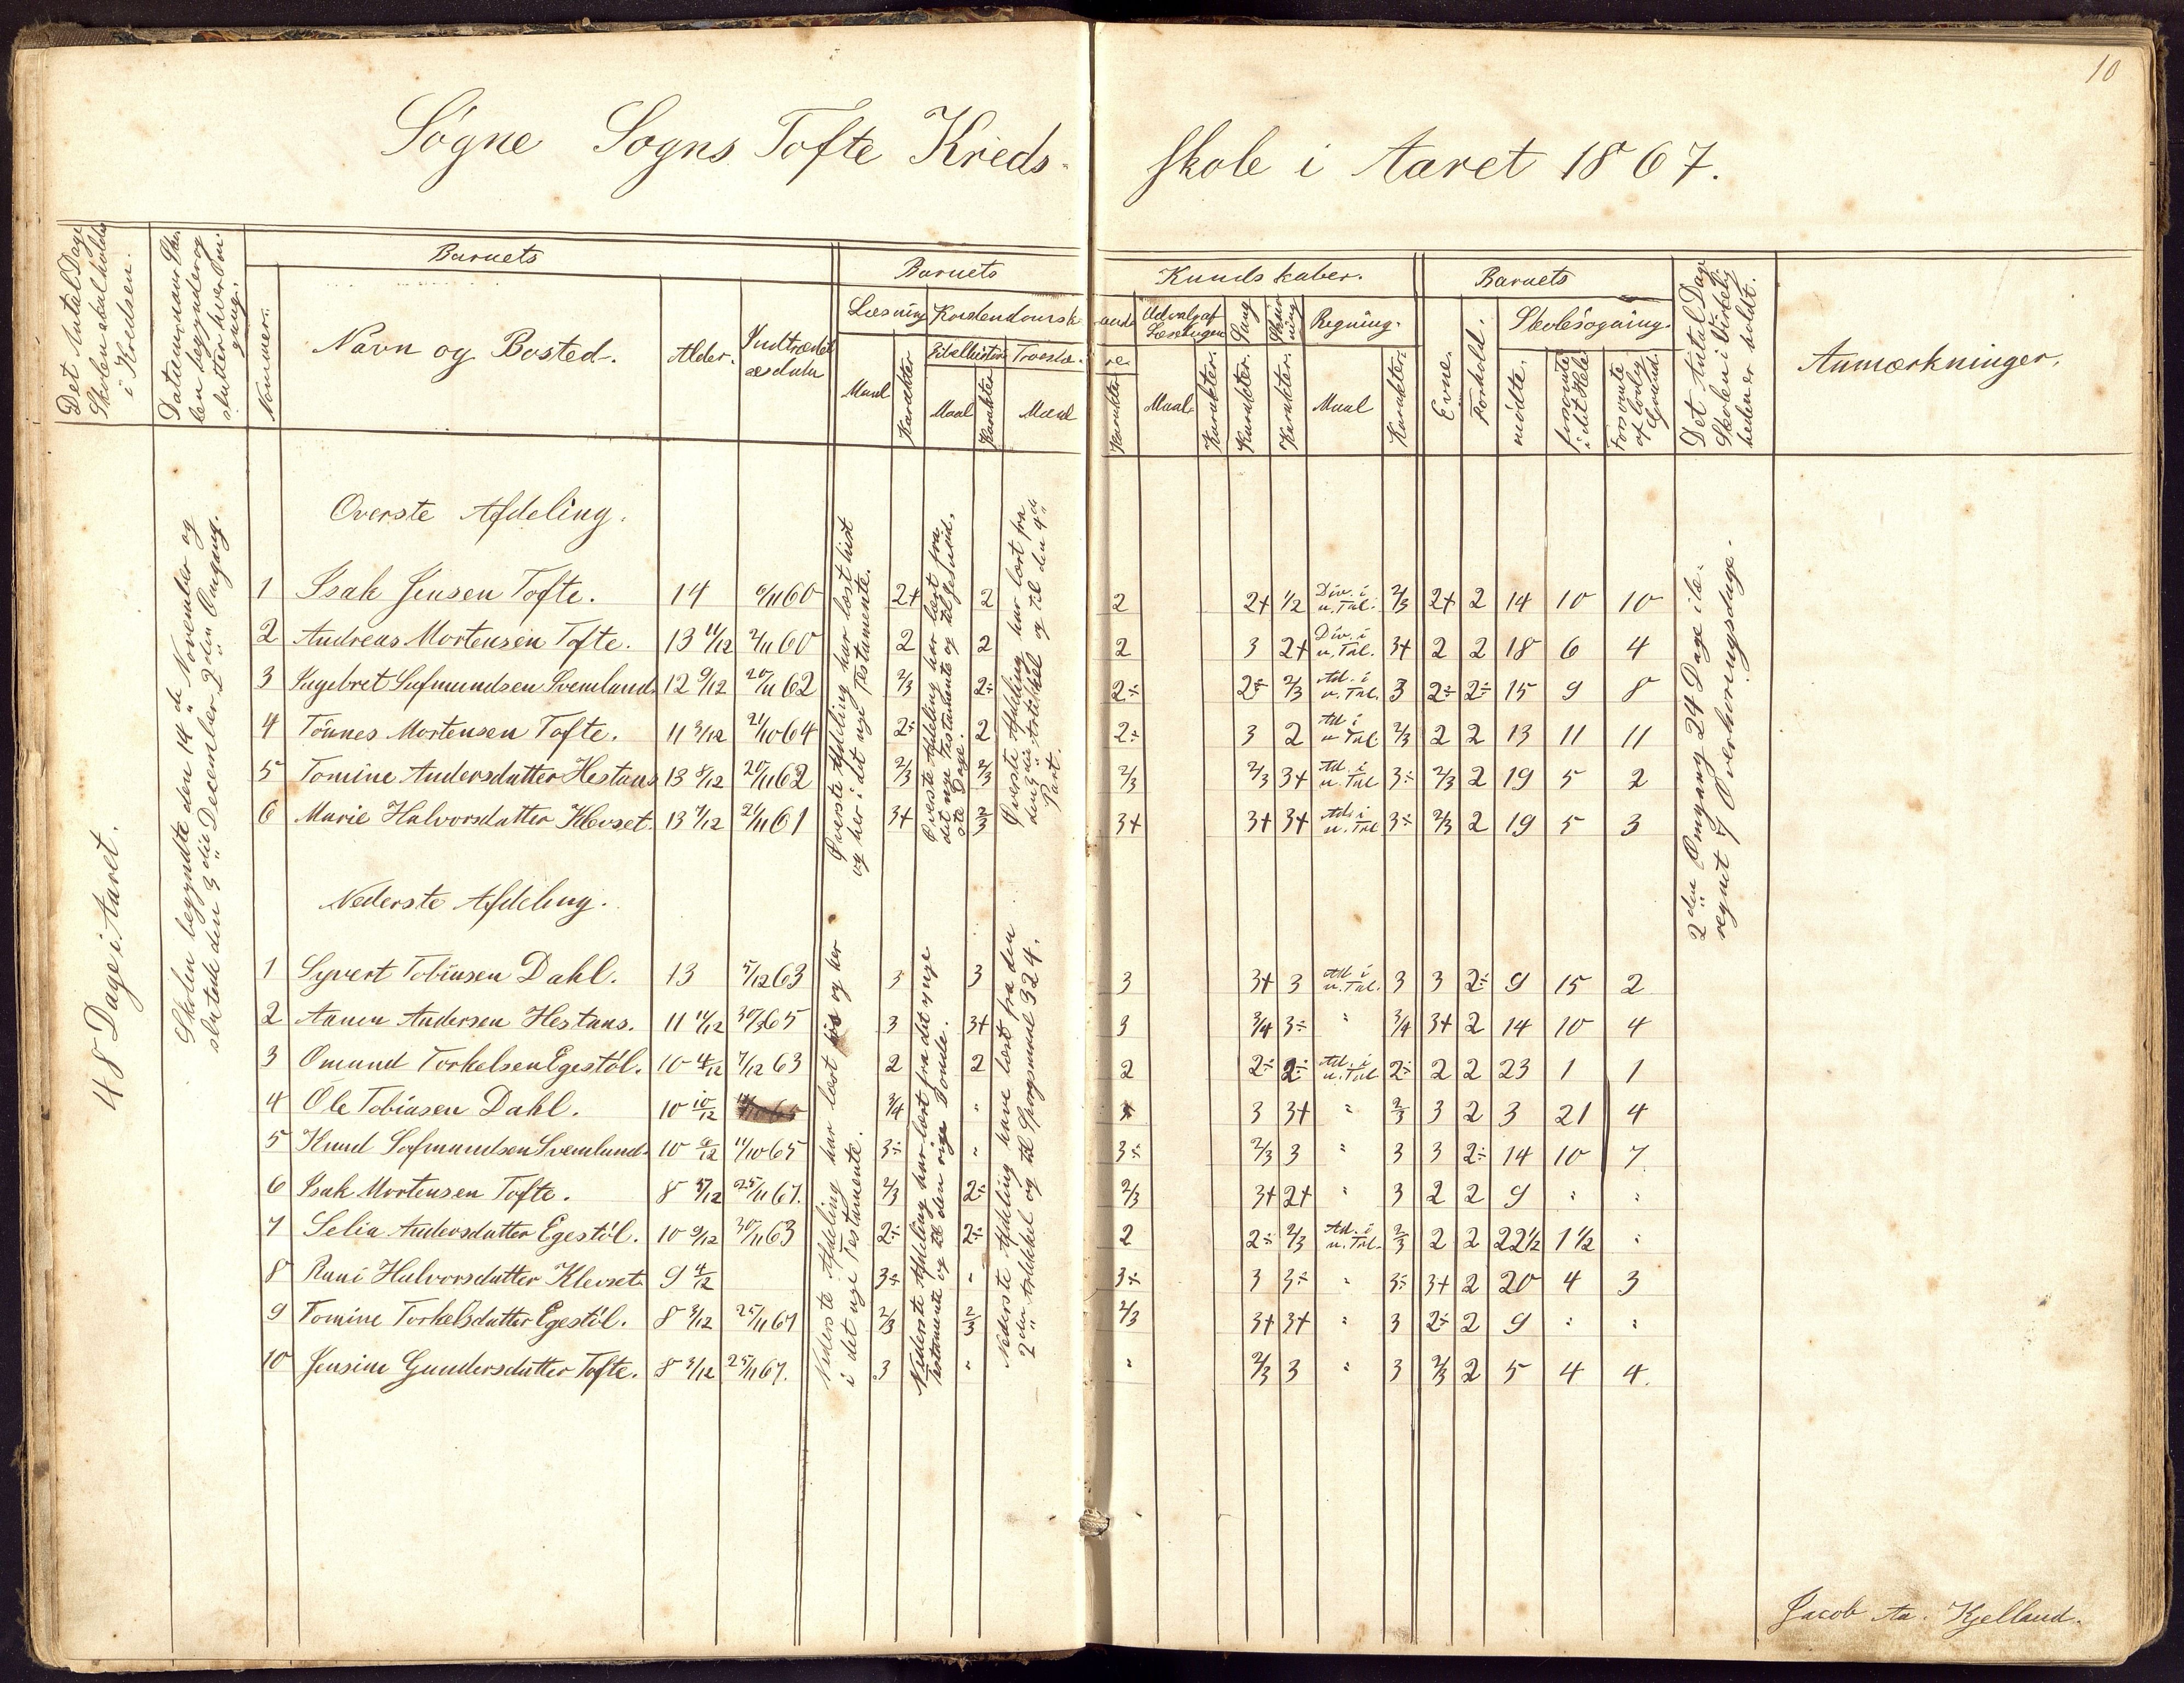 10
Søgne Sogns Tofte Kreds-
skole i Aaret 1867.
Det Antal Dage
Skolen skal holdes
i Kredsen.
Datum naar Sko-
len begynder og
slutter hver Om-
gang.
Barnets
Nommer.
Navn og Bosted.
Alder.
Indtrædel-
sesdatum
Barnets
Læsning
Kristendomsk
Maal
Karakter
Bibelhistorie
Maal
Karakter
Troeslæ-
Maal
Kundskaber.
Karakter
Udvalg af
Læsebogen
Maal
Karakter.
Sang
Karakter.
Skriv
ning
Karakter.
Regning.
Maal
Karakter.
Barnets
Evne.
Forhold.
Skolesøgning.
mødte.
forsømte
i det Hele.
Forsømte
af lovlig
Grund.
Det Antal Dage
Skolen i Virkelig-
heden er holdt.
Anmærkninger.
48 Dage i Aaret.
Skolen begyndte den 14de November og
sluttede den 3die December 2den Omgang.
Øverste Afdeling.
1 Isak Jensen Tofte. 14 6/11 60 2+ 2 2 2+ 1/2 Div. i u. Tal. 2/3 2+ 2 14 10 10
2 Andreas Mortensen Tofte. 13 11/12 2/11 60 2 2 2 3 2+ Div. i u. Tal. 3+ 2 2 18 6 4
3 Ingebret Gufmundsen Svemland. 12 9/12 20/11 62 2/3 2÷ 2÷ 2÷ 2/3 Ad. i u. Tal. 3 2÷ 2÷ 15 9 8
4 Tønnes Mortensen Tofte. 11 3/12 21/10 64 2÷ 2 2÷ 3 2 Ad i u Tal 2/3 2 2 13 11 11
5 Tomine Andersdatter Hestaas 13 8/12 20/11 62 2/3 2/3 2/3 2/3 3+ Ad. i u. Tal 3÷ 2/3 2 19 5 2
6 Marie Halvorsdatter Klevset. 13 7/12 21/11 61 3+ 2/3 3+ 3+ 3+ Ad. i u. Tal 3÷ 2/3 2 19 5 3
Øverste Afdeling har læst hist
og her i det nye Testamente.
Øverste Afdeling har læst fra
det nye Testamente og til
Øverste Afdeling har lært fra
den 3die Artikel og til den 4de
Part.
2den Omgang 24 Dage ibe-
regnet 7 Overhøringsdage.
Nederste Afdeling.
1 Syvert Tobiasen Dahl. 13 5/12 63 3 3 3 3+ 3 Ad i u. Tal. 3 3 2÷ 9 15 2
2 Aanen Andersen Hestaas. 11 11/12 30/3 65 3 3+ 3 3/4 3÷ " 3/4 3+ 2 14 10 4
3 Omund Torkelsen Egestøl. 10 4/12 7/12 63 2 2 2 2÷ 2÷ Ad. i u. Tal 2÷ 2 2 23 1 1
4 Ole Tobiasen Dahl. 10 10/12 3/4 " 3 3+ " 2/3 3 2 3 21 4
5 Knud Gufmundsen Svemland. 10 2/12 11/10 65 3÷ " 3÷ 2/3 3 " 3 3 2÷ 14 10 7
6 Isak Mortensen Tofte. 8 5/12 25/11 67. 2/3 2÷ 2/3 3+ 2+ " 3 2 2 9 " "
7 Selia Andersdatter Egestøl. 10 9/12 30/11 63 2÷ 2÷ 2 2÷ 2/3 Ad. i u. Tal. 2/3 2 2 22 1/2 1 1/2 "
8 Rani Halvorsdatter Klevset. 9 4/12 3÷ " 3÷ 3 3÷ " 3÷ 3+ 2 20 4 3
9 Tomine Torkelsdatter Egestøl. 8 3/12 25/11 67 2/3 2/3 2/3 3+ 3+ " 3 2÷ 2 9 " "
10 Jensine Gundersdatter Tofte. 8 3/12 25/11 67. 3 " " 2/3 3 " 3 2/3 2 5 4 4.
Nederste Afdeling har læst og her
i det nye Testamente.
Nederste Afdeling har læst fra det nye
Testamente og til den rige Bonde.
Nederste Afdeling have læst fra den
2den Artikkel og til Spørgsmaal 324.
Jacob Aa. Kjelland.